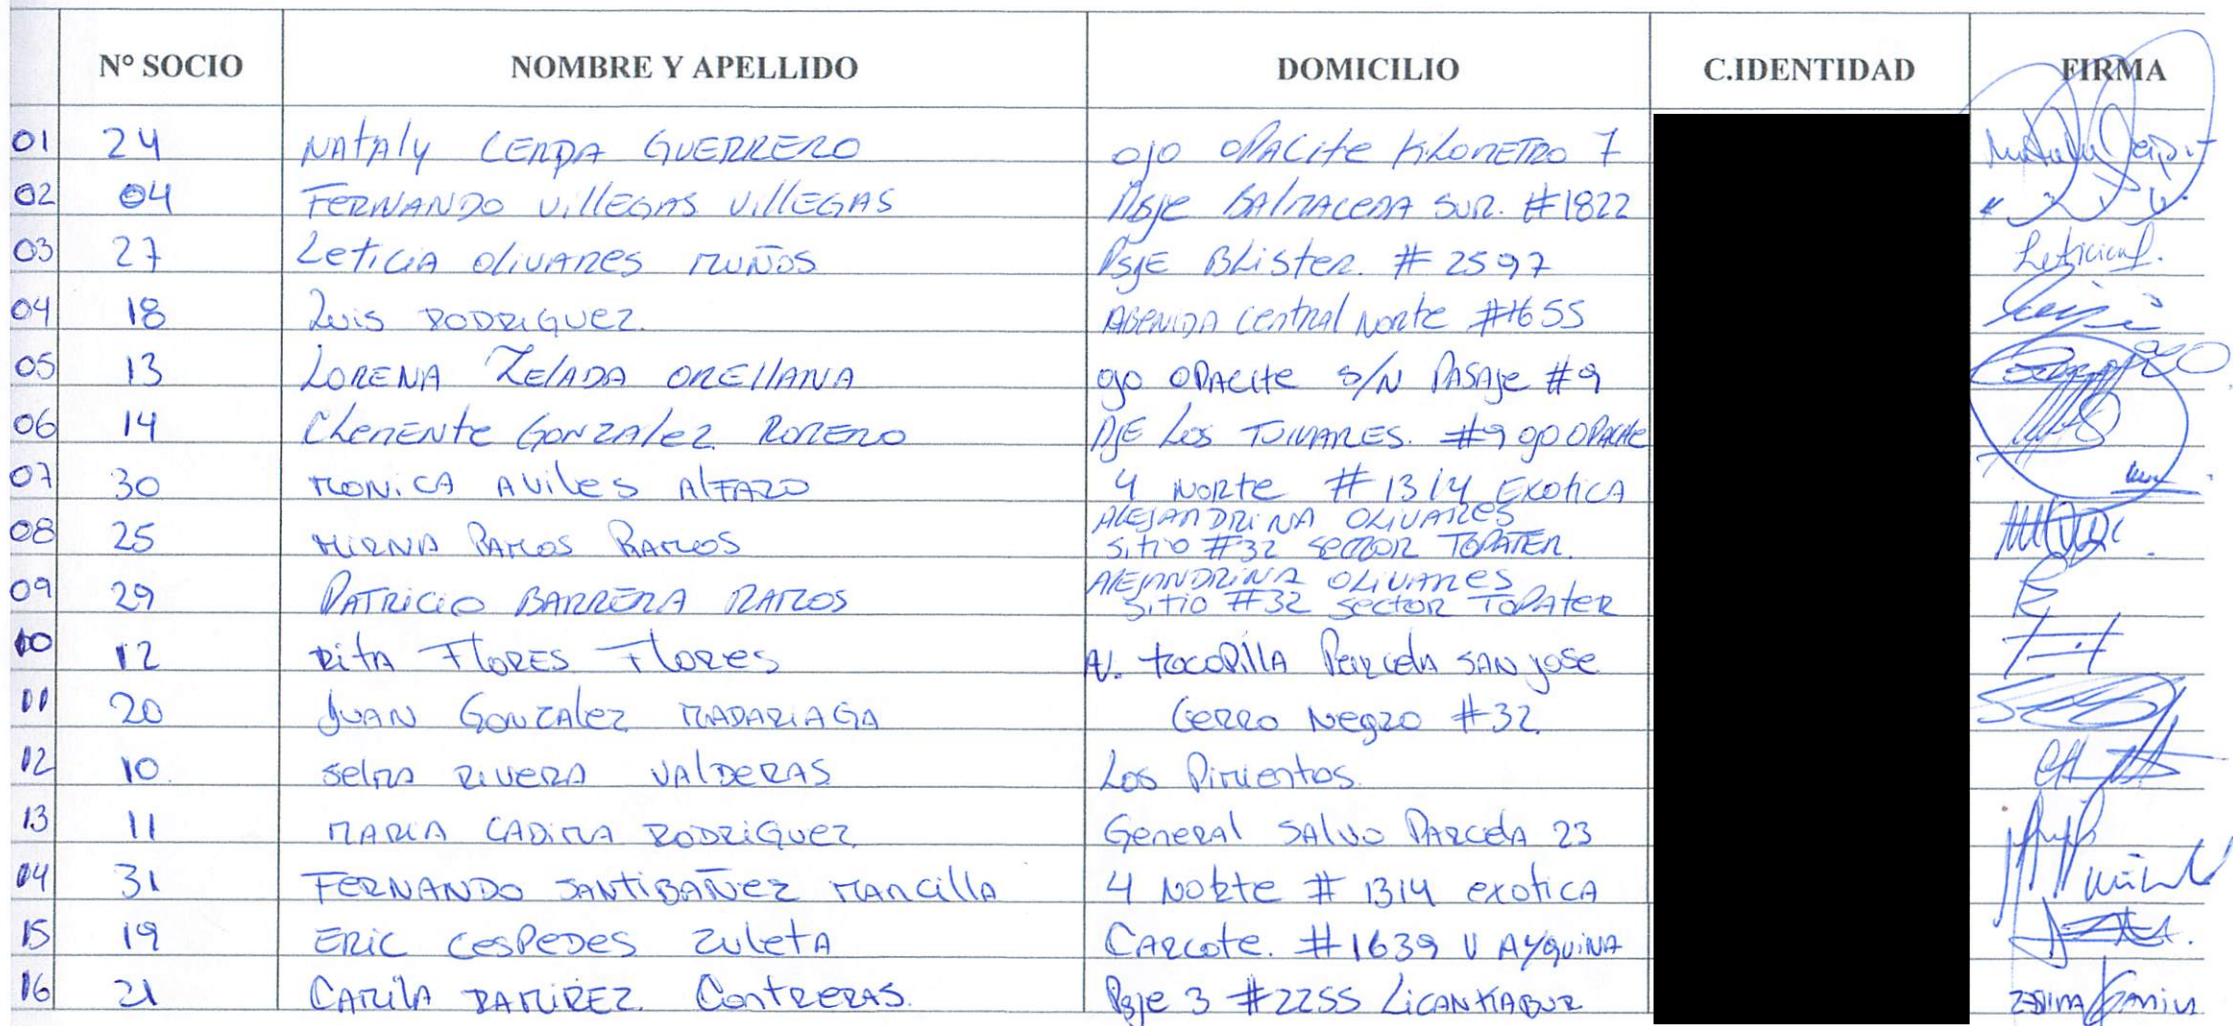 N° SOCIO NOMBRE Y APELLIDO DOMICILIO C.IDENTIDAD FIRMA
01 24 NATAly CERDA GUERRERO OJO OPACITE KILOMETRO 7
02 04 FERNANDO VillEGAS VillEGAS PSje BAlMACEDA SUR. #1822
03 27 LetiCiA OliVARES MUÑOS PSJE BListeR. # 2597
04 18 Luis RODRiGUEZ. ABENIDA CentRal NORte #1655
05 13 LORENA ZElADA OREllANA OJO OPACite S/N PASAje #9
06 14 CleMENte GONZAlez ROMERO PJE Los #9 OJO OPACite
07 30 MONiCA AViles AlFARO 4 NORte # 1314 EXOtiCA
08 25 MIRNA RAMOS RAMOS ALEJANDRiNA OLiVARES
SitiO #32 SECTOR TOPATER.
09 29 PATRiCiO BARRERA RAMOS AlEJANDRiNA OLiVARES
SitiO #32 SectOR TOPAteR
10 12 RitA FlORES FlORes AV. tOCOPillA PARCelA SAN JOSE
11 20 JUAN GONZAlez MADARiAGA CERRO NEGRO #32.
12 10. SelMA RiVERA VAlDERAS Los Pimientos.
13 11 MARIA CADIMA RODRiGUEZ GeneRAl SAlVO PARCelA 23
14 31 FERNANDO SANTiBAÑEZ MANCillA 4 NORte # 1314 exotiCA
15 19 ERiC CesPeDES ZuletA CARCOte. #1639 V AYQUiNA
16 21 CAMilA RAMiREZ. CONTRERAS. PSje 3 #2255 LiCANKABUR